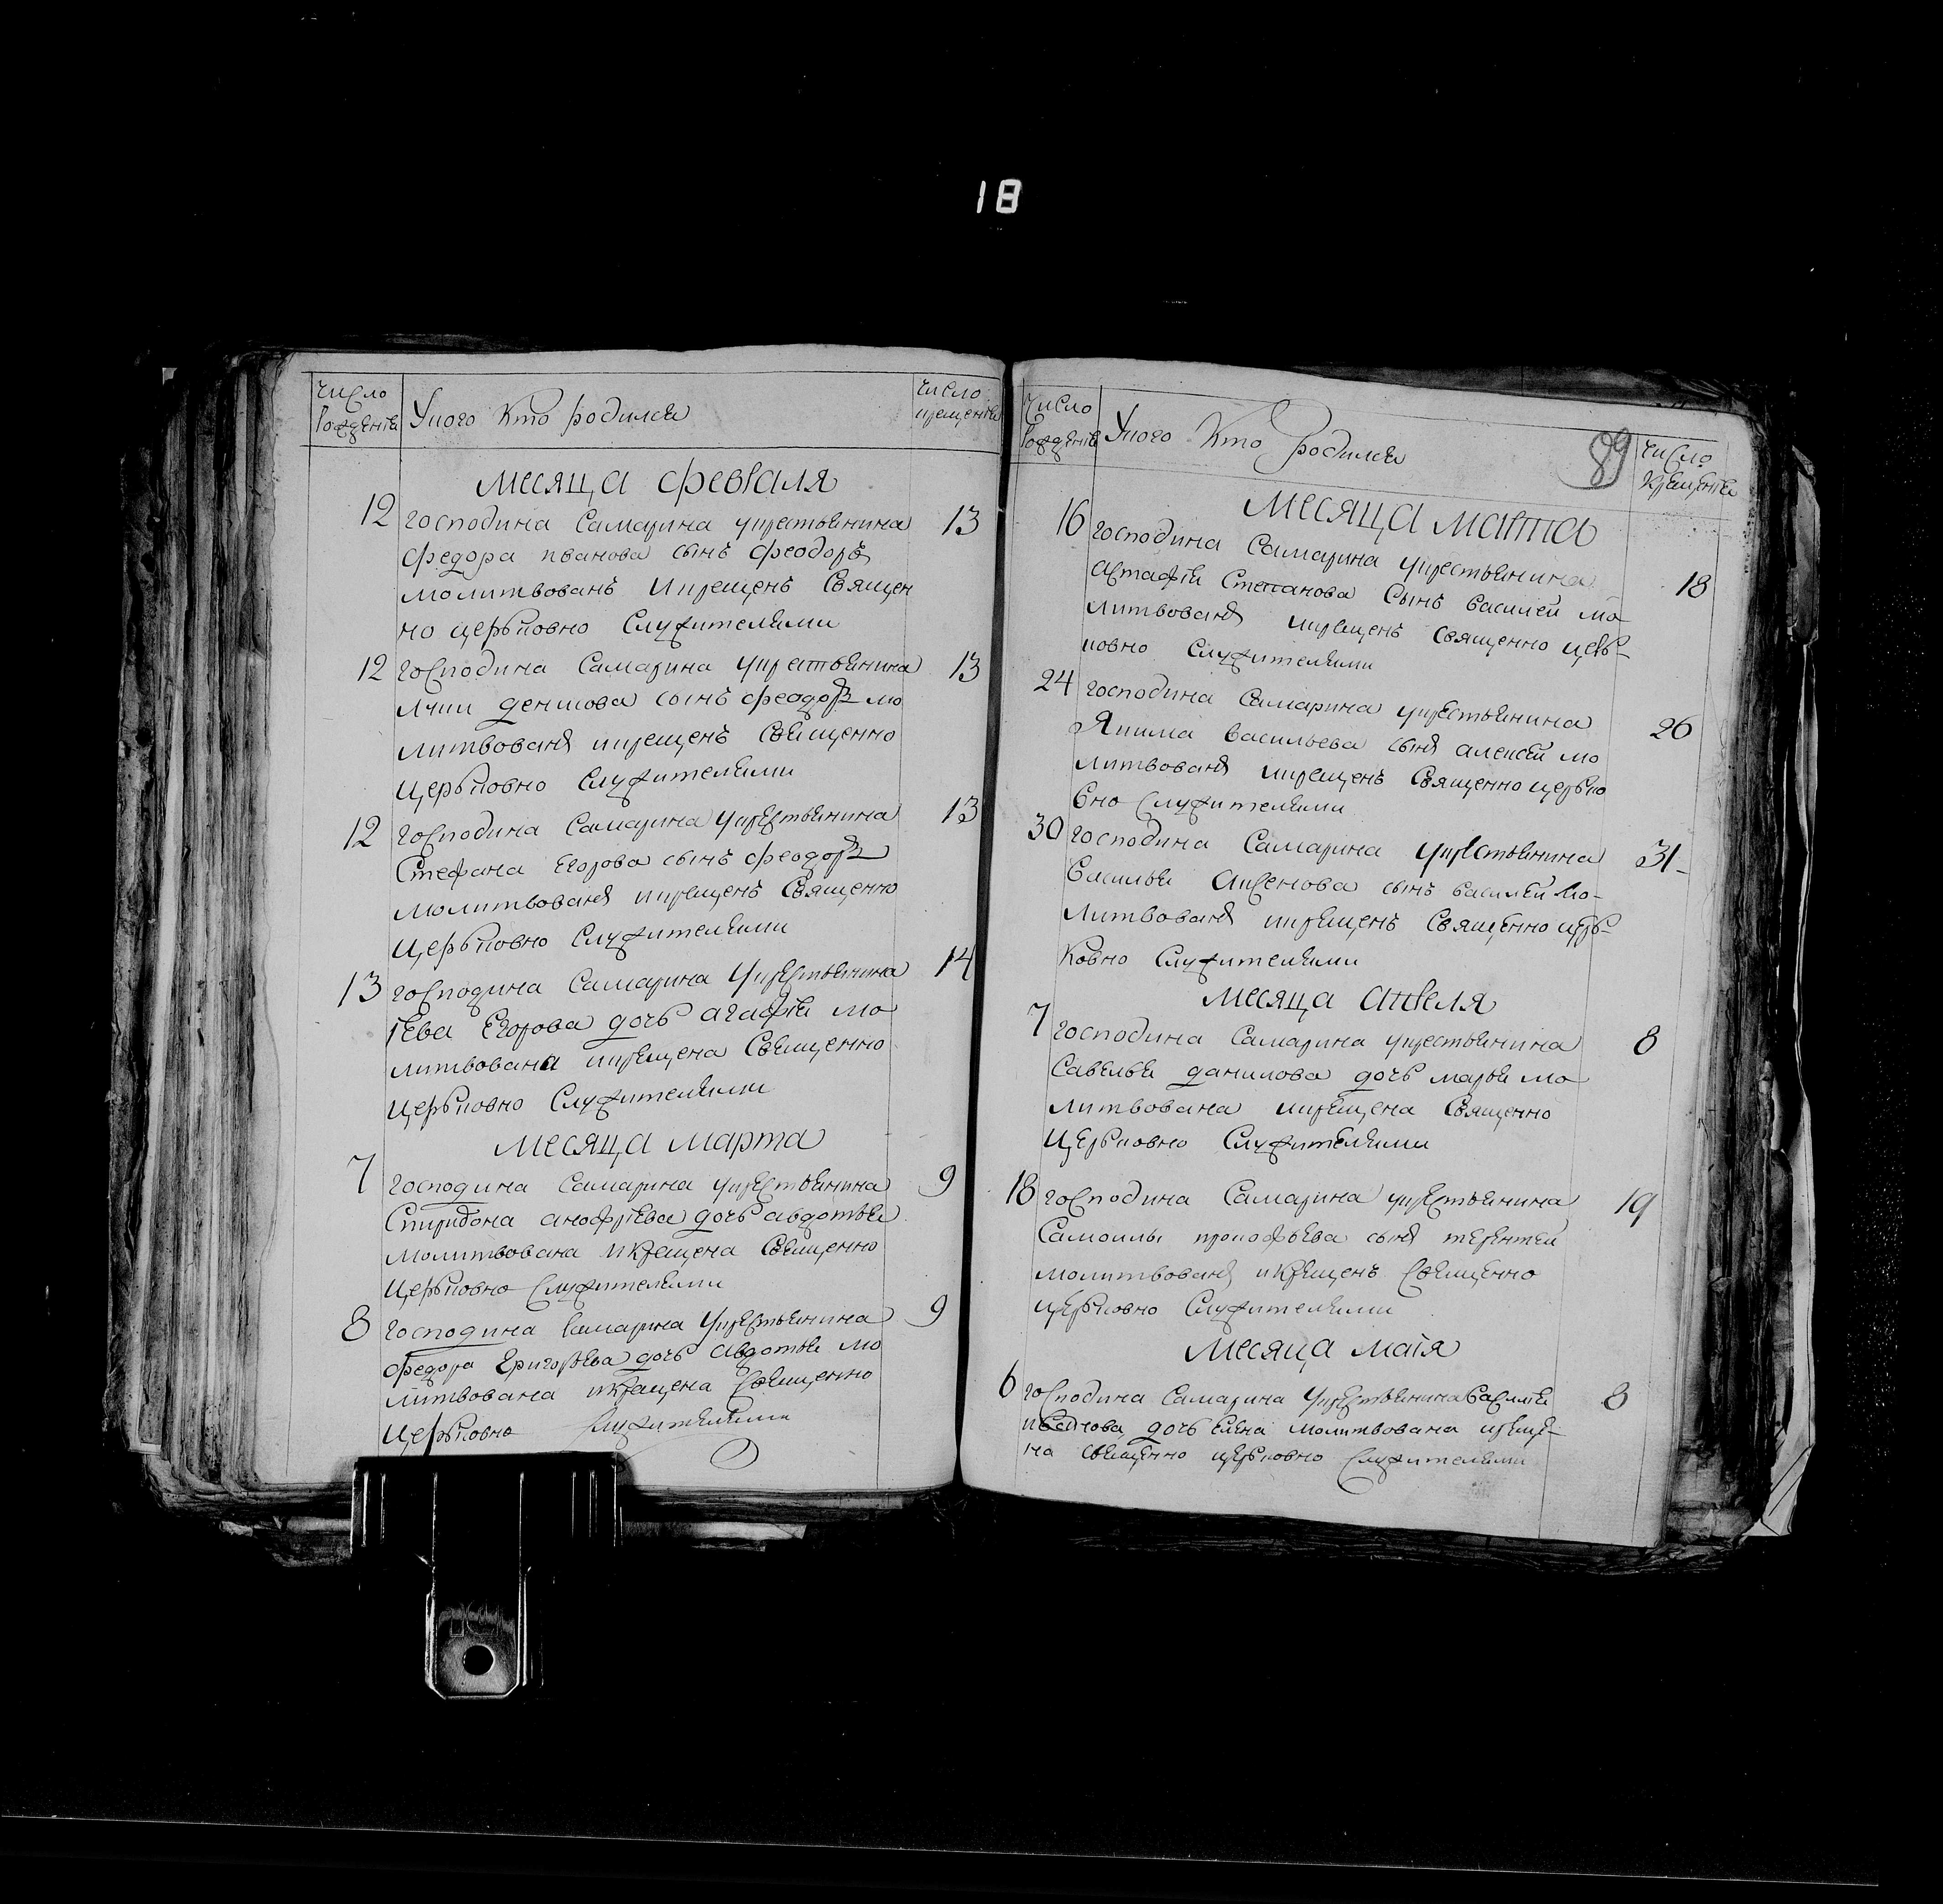 18
Число рожденiя
У кого кто родился
Число крещенiя
Месяца февраля
12 господина Самарина у крестьянина 13
федора иванова сынъ феодоръ
молитвованъ и крещенъ Священ
но церьковно Служителями
12 господина Самарина у крестьянина 13
денисова сынъ феодоръ мо
литвованъ и крещенъ Священно
церьковно Служителями
12 господина Самарина у крестьянина 13
Стефана Егорова сынъ феодоръ
молитвованъ и крещенъ Священно
церьковно Служителями
13 господина Самарина у крестьянина 14
Егорова дочь агафiя мо
литвована и крещена Священно
церьковно Служителями
Месяца марта
7 господина Самарина у крестьянина 9
Спиридона анофрiева дочь авдотья
молитвована и крещена Священно
церьковно Служителями
8 господина Самарина у крестьянина 9
федора Григорьева дочь авдотья мо
литвована и крещена Священно
церьковно Служителями
Число рожденiя
У кого кто родился
89
Число крещенiя
Месяца марта
16 господина Самарина у крестьянина 18
астафiя Степанова Сынъ василей мо
литвованъ и крещенъ Священно церь-
ковно Служителями
24 господина Самарина у крестьянина 26
Якима васильева сынъ алексей мо
литвованъ и крещенъ Священно церько
вно Служителями
30 господина Самарина у крестьянина 31
василья аксенова сынъ василей мо-
литвованъ и крещенъ Священно церь-
ковно Служителями
Месяца апреля
7 господина Самарина у крестьянина 8
Савелья данилова дочь марья мо
литвована и крещена Священно
церьковно Служителями
18 господина Самарина у крестьянина 19
Самоилы прокофьева сынъ терентей
молитвованъ и крещенъ Священно
церьковно Служителями
Месяца маiя
6 господина Самарина у крестьянина василья 8
дочь елена молитвована и креще-
на Священно церьковно Служителями